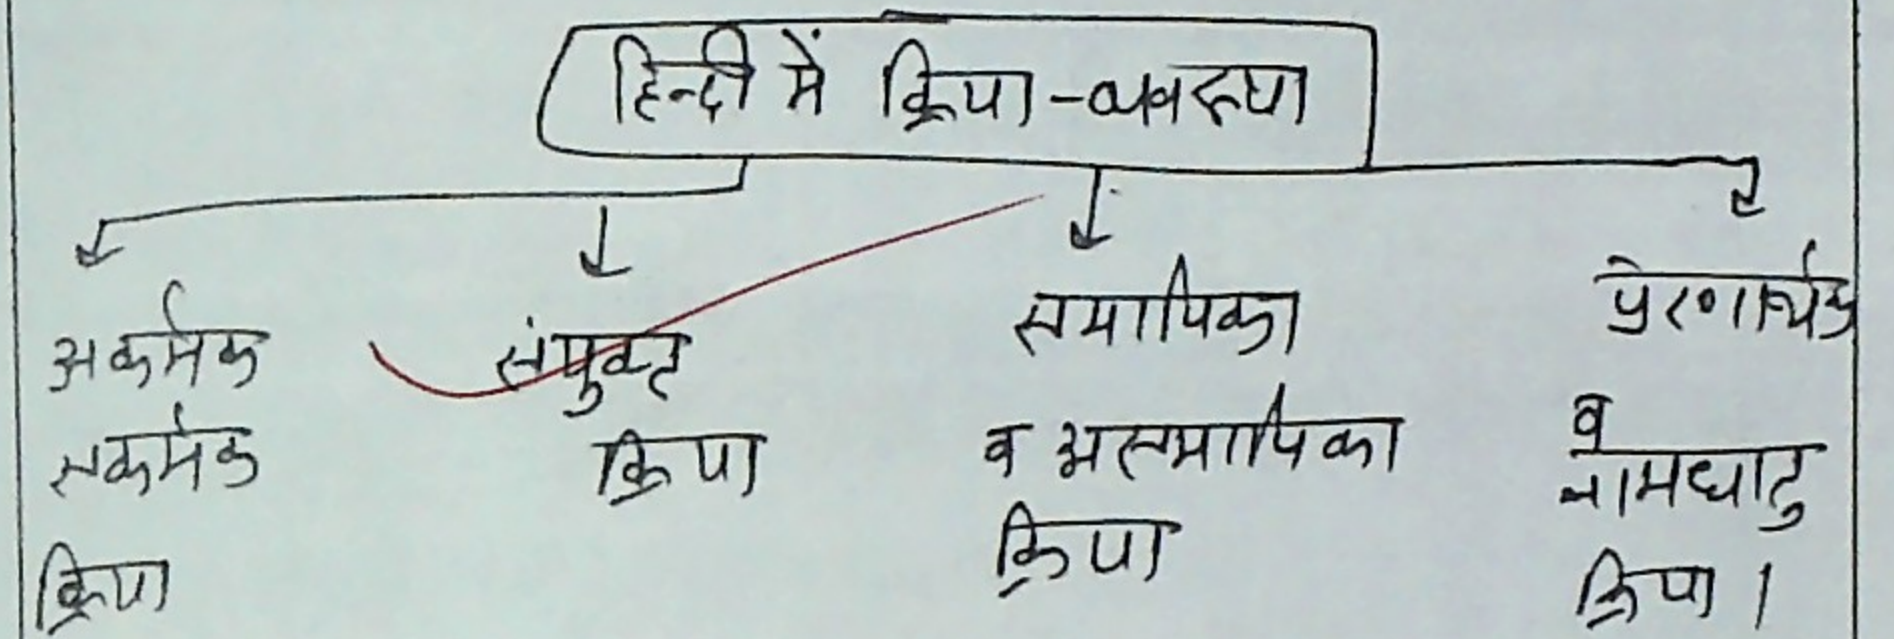 हिन्दी में क्रिया-व्यवस्था
अकर्मक
सकर्मक
क्रिया
संयुक्त
क्रिया
समापिका
व असमापिका
क्रिया
प्रेरणार्थक
व
नामधातु
क्रिया।